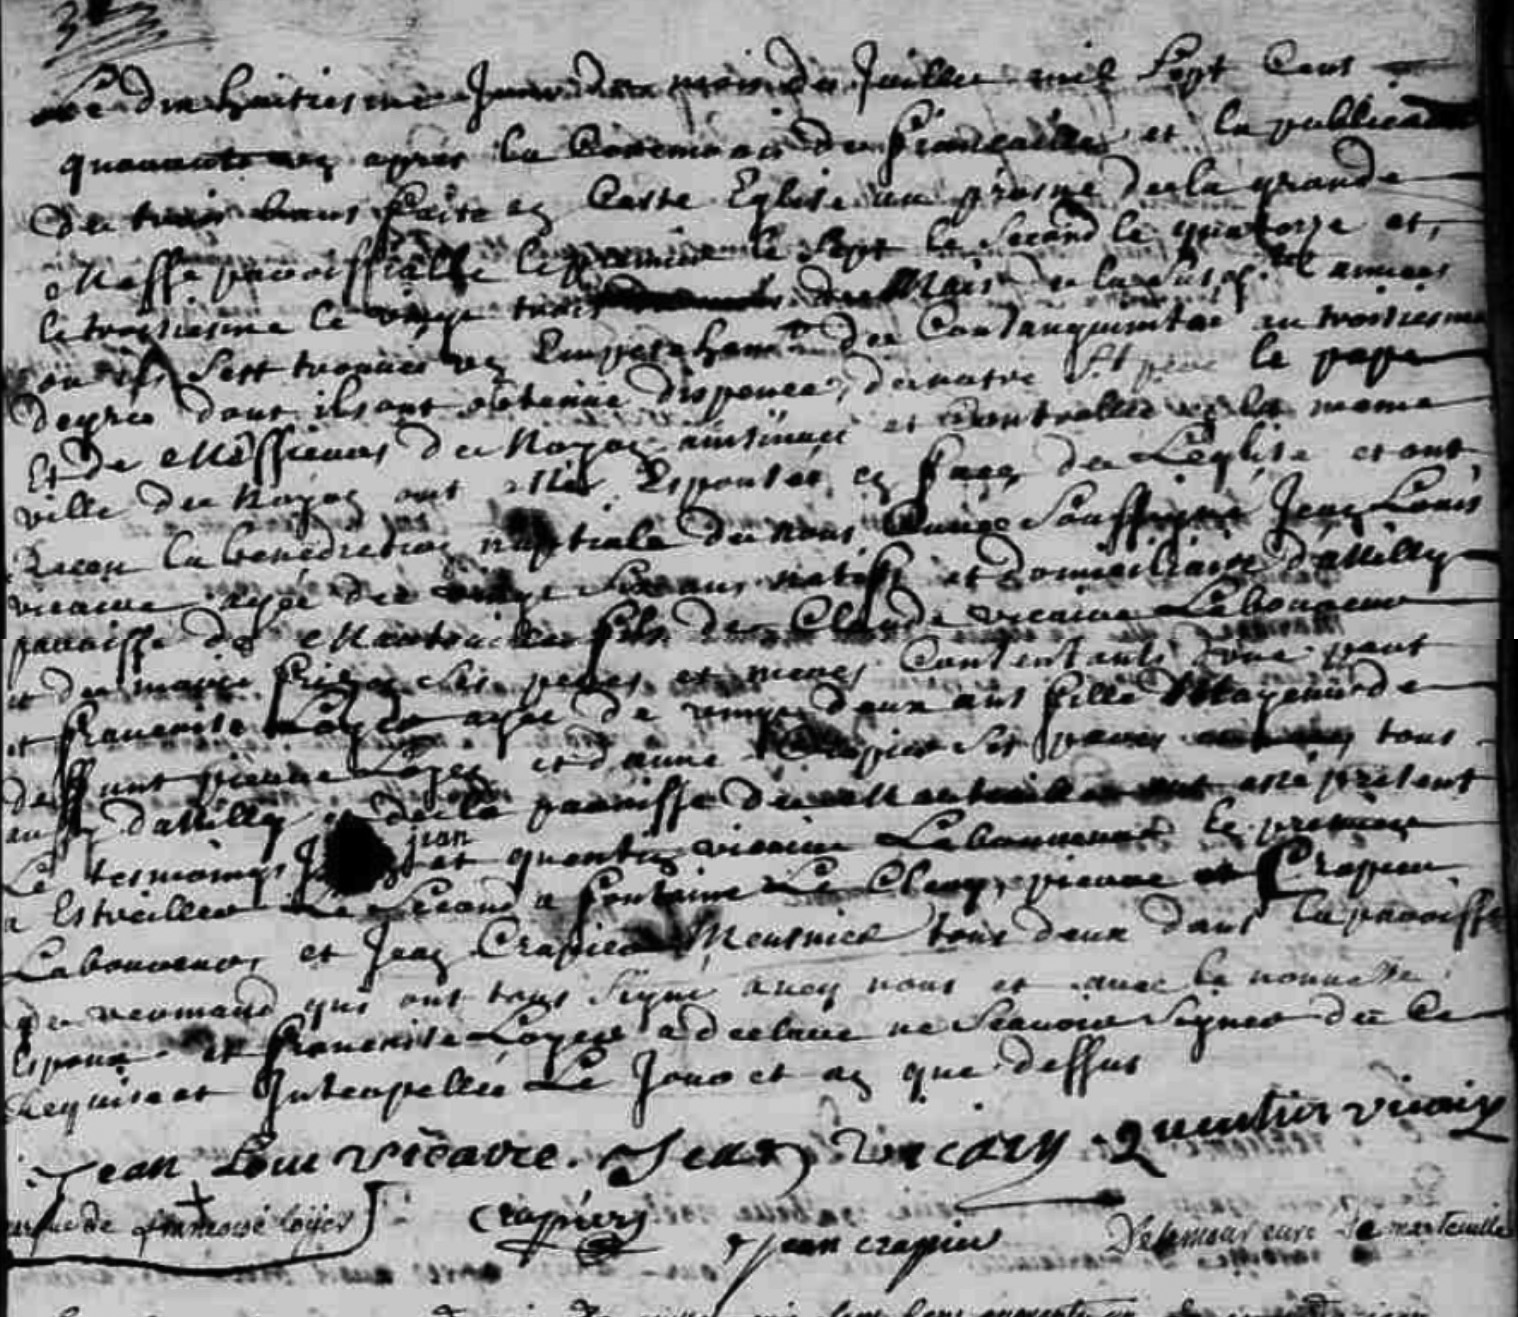 Le dix huitiesme Jour du mois de Juillet mil Sept Cens
quarante un apprès la Ceremonie de fiancailles et la publication
de trois bans faite en Cette Eglise au prosne de la grande
Messe paroissialle le premier le Sept le Second le quatorze et
le troisiesme le vingt trois du Mois de la susd. annees
ou il sest trouvé un Empeschemt de Consanguinitée au troisiesme
degrée dont ils ont obtenüe dispence, de notre St pere le pape
Et de Messieurs de Noyon insinuée et controllée la meme
ville de Noyon ont estés Espousés en face de L'eglise et ont
Receu la benediction nuptiale de nous Curée Soussigné Jean Louis
vicaire agée de vingt Six ans natiff et domiciliaire d'atilly
paroisse de Marteville fils de Claude vicaire Laboureur
et de marie ses peres et meres Contentants d'une part
et francoise Loyer agée de vingt deux ans fille Mageure de
deffunt pierre Loyer et d'anne Crapier ses peres tous
aussy d'atilly de la paroisse de Marteville ont esté present
Le tesmoings jean et quentin vicaire Laboureurs le premier
a Estreillers Le Second a fontaine Le Clerq, pierre Crapier
Laboureur, et Jean Crapier Meusnier tous deux dans la paroisse
de vermand qui ont tous signé avecq nous et avec le nouvelle
Espoux et francoise Loyer a declaré ne scavoir signer de Ce
Requise et Interpellée Le Jour et an que dessus
Jean Loui vicaire. Jean vicaire quentin vicaire
marque de francoise loyer crapier jean crapier curé de marteville